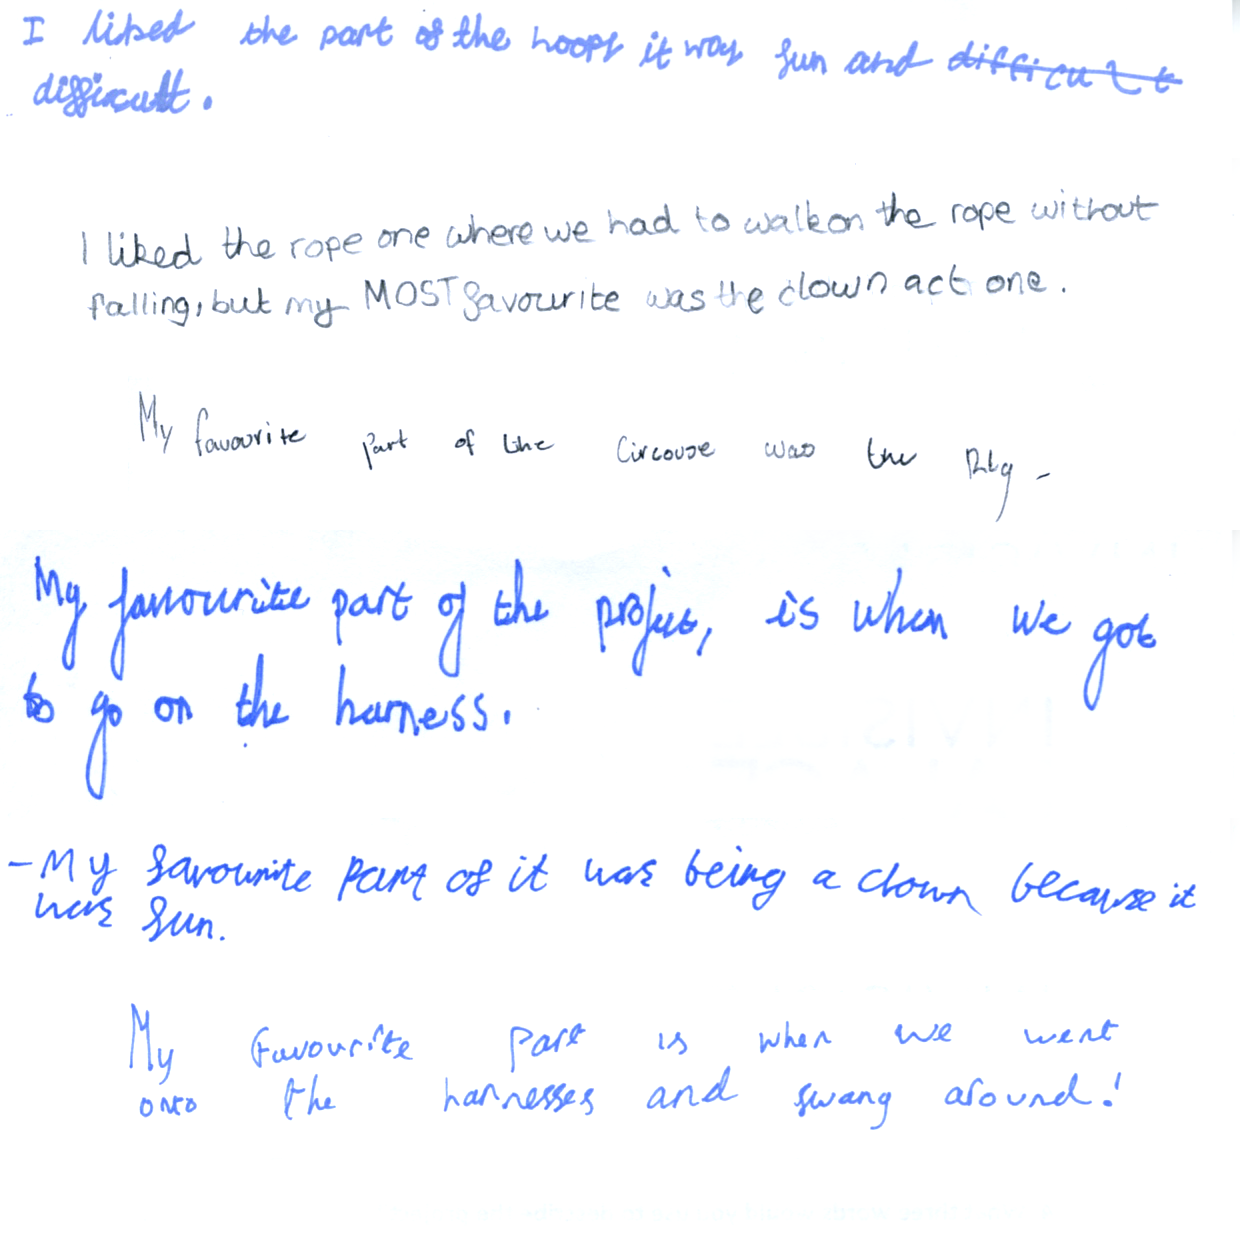 I liked the part of the hoops it was fun and difficult
difficult.
I liked the rope one where we had to walk on the rope without
falling, but my MOST favourite was the clown act one.
My favourite part of the Circouse was the
My favourite part of the project, is when we got
to go on the harness.
- My favourite part of it was being a clown because it
was fun.
My favourite part is when we went
onto the harnesses and swang around!